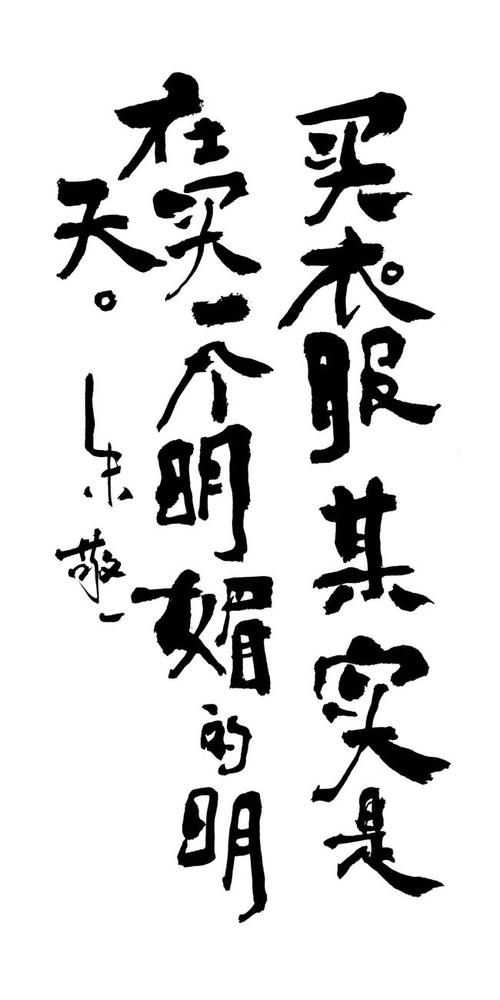 买衣服其实是
在买一个明媚的明
天。
朱敬一